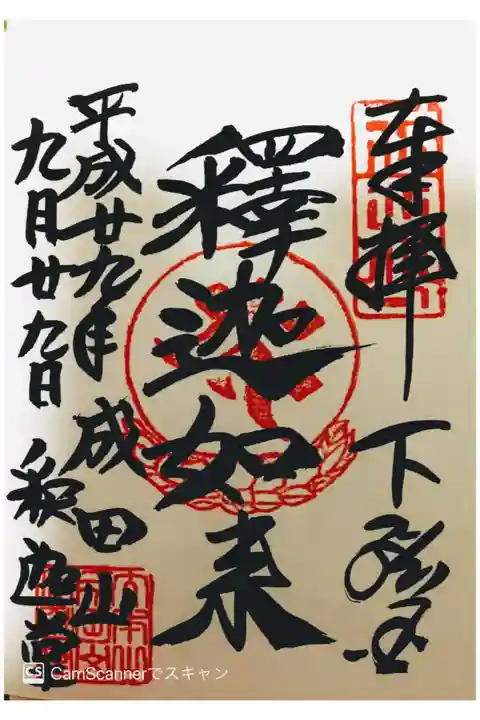 奉拝 下総国
釋迦如来
成田山 釈迦堂
平成廿九年
九月廿九日
CS CamScannerでスキャン